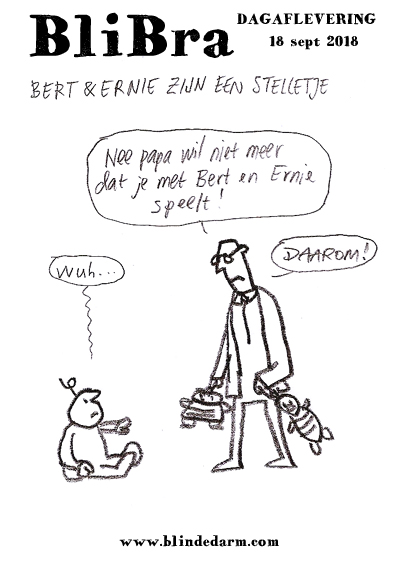 BliBra
DAGAFLEVERING
18 sept 2018
BERT & ERNIE ZIJN EEN STELLETJE
Nee papa wil niet meer
dat je met Bert en Ernie
speelt!
DAAROM!
Wuh...
www.blindedarm.com